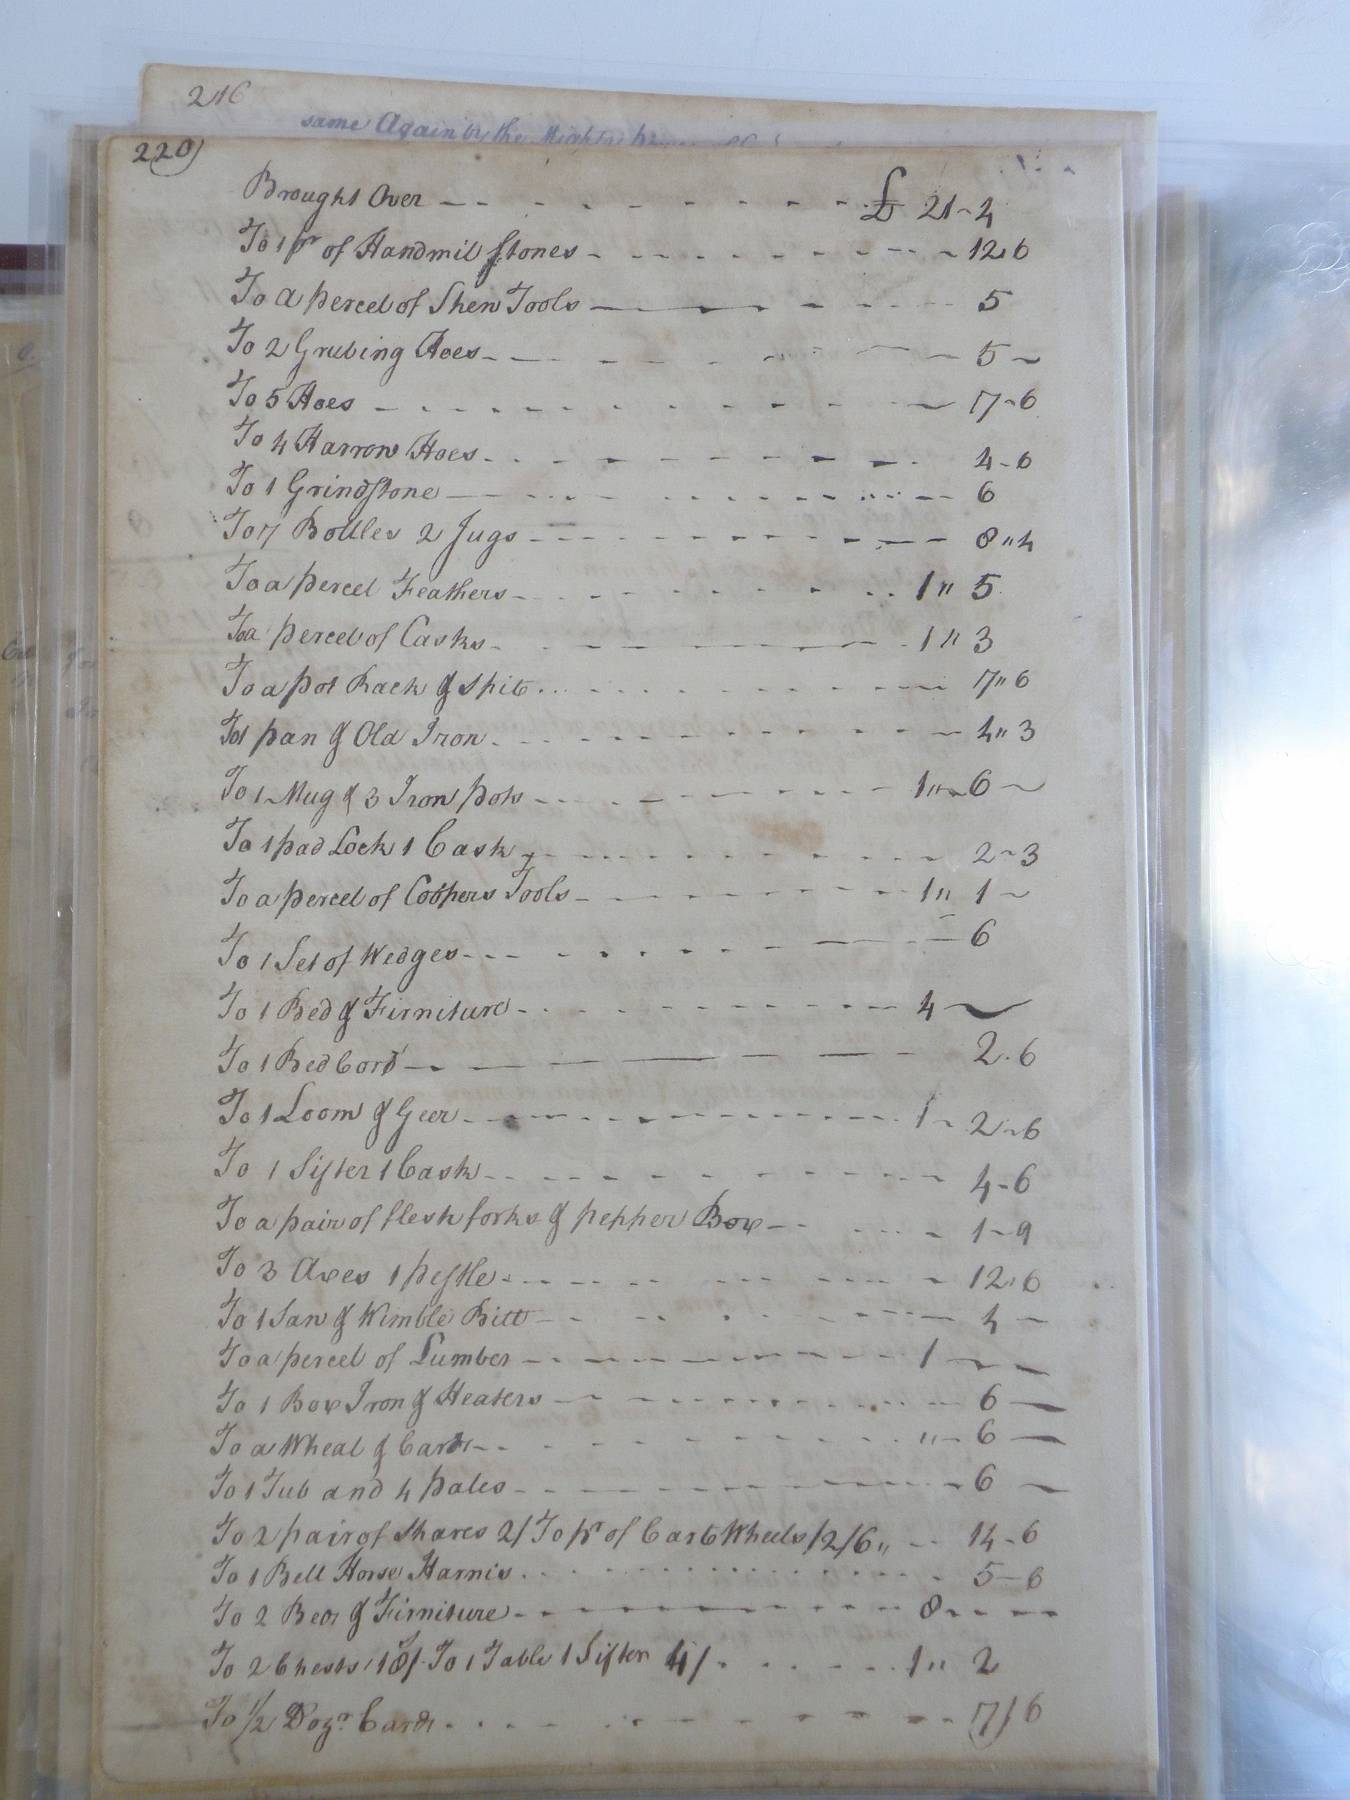 216
same Again by the Mighty
220
Brought Over £ 21 - 4
To 1 pr of Handmil Stones 12.6
To a percel of Shew Tools 5
To 2 Grubing Hoes 5
To 5 Hoes 7-6
To 4 Harrow Hoes 4-6
To 1 Grindstone 6
To 7 Bottles 2 Jugs 8"4
To a percel Feathers 1" 5
To a percel of Casks 1" 3
To a pot Rack & spit 7"6
To 1 pan & Old Iron 4"3
To 1 Mug & 3 Iron pots 1" 6
To 1 pad Lock 1 Cask 2-3
To a percel of Coopers Tools 1" 1
To 1 Set of Wedges 6
To 1 Bed & Firniture 4
To 1 Bed Cord 2.6
To 1 Loom & Geer 1 - 2-6
To 1 Sifter 1 Cask 4-6
To a pair of flesh forks & pepper Box 1-9
To 3 Axes 1 pestle 12.6
To 1 Saw & Wimble Bitt 4
To a percel of Lumber 1
To 1 Box Iron & Heaters 6
To a Wheal & Cards " 6
To 1 Tub and 4 pales 6
To 2 pair of Shares 2/ To pr of Cart Wheels 12/6" 14-6
To 1 Bell Horse Harnis 5-6
To 2 Beds & Firniture 8
To 2 Chests 18/ To 1 Table 1 Sifter 4/ 1" 2
To 1/2 Dozn Cards 7/6